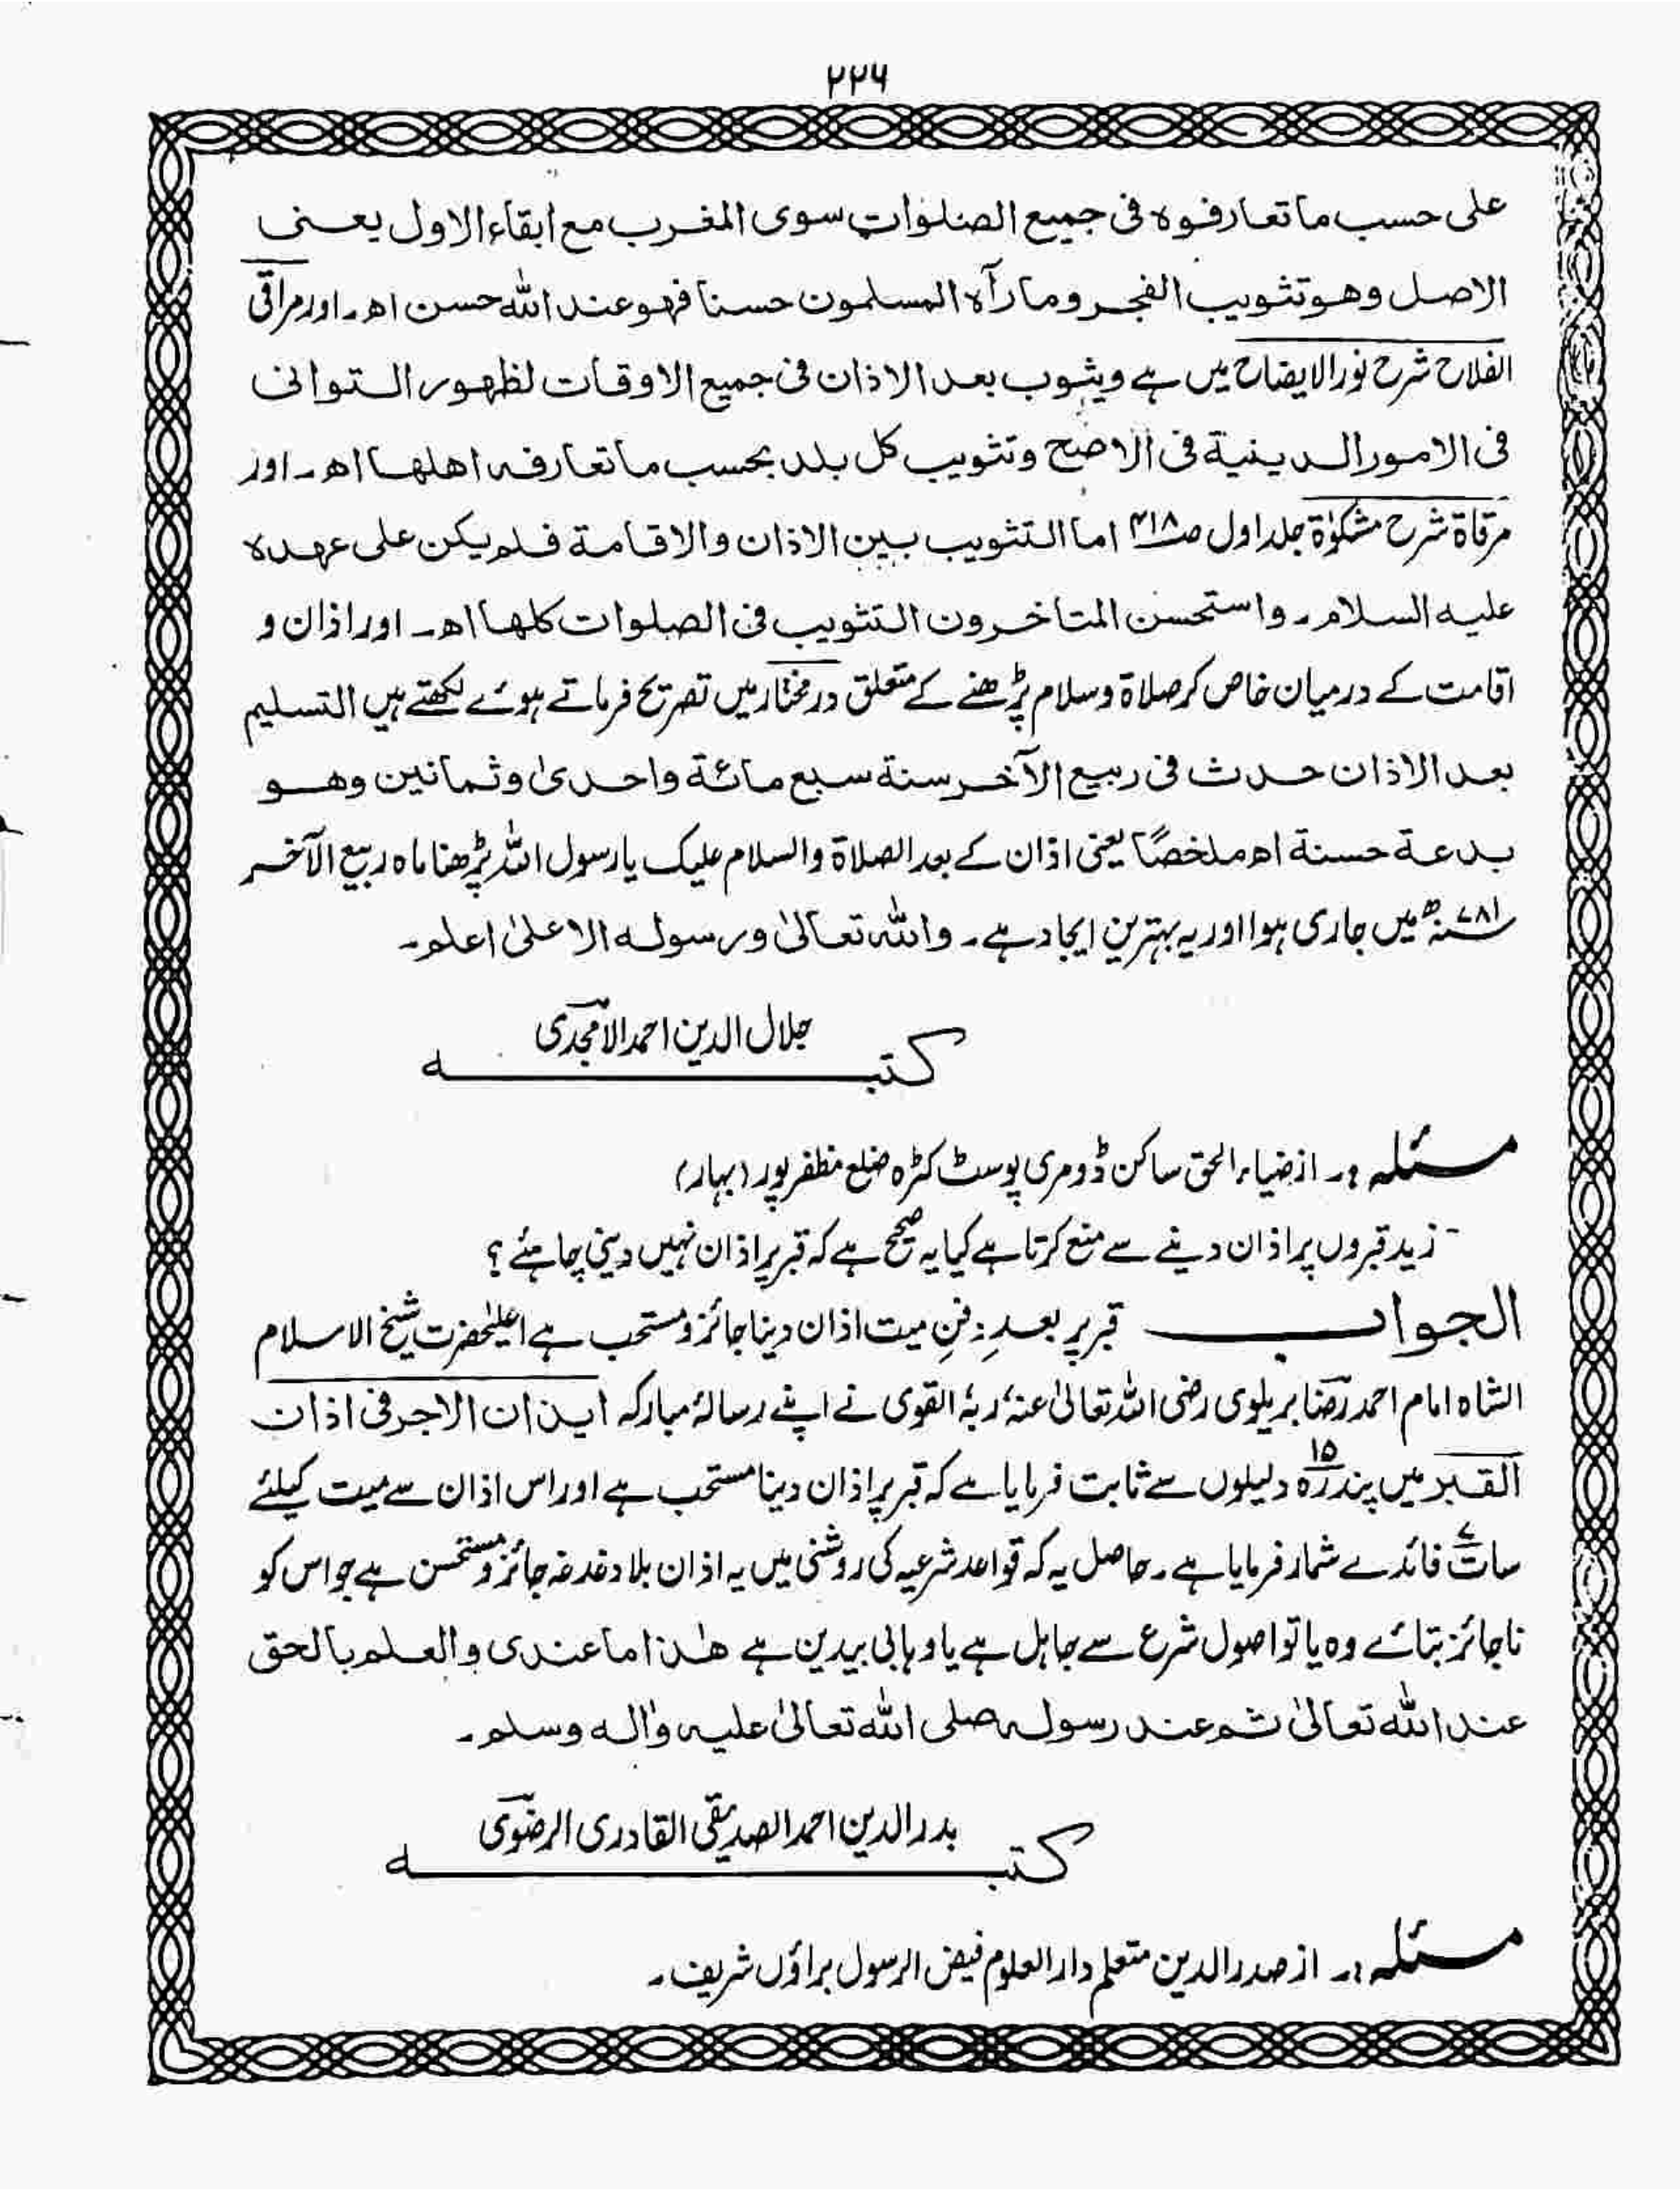 ۲۲۶
علی حسب ما تعارفوہ فی جمیع الصلوات سوی المغرب مع ابقاء الاول یعنی
الاصل وھو تثویب الفجر وما رآہ المسلمون حسنا فھو عند اللہ حسن اھ۔ اور مراقی
الفلاح شرح نور الایضاح میں ہے ویثوب بعد الاذان فی جمیع الاوقات لظھور التوانی
فی الامور الدینیة فی الاضح وتثویب کل بلد بحسب ما تعارفہ اھلھا اھ۔ اور
مرقاة شرح مشکوٰة جلد اول ص۴۱۸ اما التثویب بین الاذان والاقامة فلم یکن علی عھدہ
علیہ السلام۔ واستحسن المتاخرون التثویب فی الصلوات کلھا اھ۔ اور اذان و
اقامت کے درمیان خاص کر صلاة وسلام پڑھنے کے متعلق درمختار میں تصریح فرماتے ہوئے لکھتے ہیں التسلیم
بعد الاذان حدث فی ربیع الآخر سنة سبع مائة واحدیٰ وثمانین وھو
بدعة حسنة اھ ملخصًا یعنی اذان کے بعد الصلاة والسلام علیک یا رسول اللہ پڑھنا ماہ ربیع الآخر
۷۸۱ھ میں جاری ہوا اور یہ بہترین ایجاد ہے۔ واللہ تعالیٰ ورسولہ الاعلیٰ اعلم۔
جلال الدین احمد الامجدی
کتبہ
مسئلہ :۔ از ضیاء الحق ساکن ڈومری پوسٹ کٹرہ ضلع مظفر پور (بہار)
زید قبروں پر اذان دینے سے منع کرتا ہے کیا یہ صحیح ہے کہ قبر پر اذان نہیں دینی چاہئے؟
الجواب قبر پر بعدِ دفنِ میت اذان دینا جائز ومستحب ہے اعلیٰحضرت شیخ الاسلام
الشاہ امام احمد رضا بریلوی رضی اللہ تعالیٰ عنہٗ ربہٗ القوی نے اپنے رسالۂ مبارکہ ایذان الاجر فی اذان
القبر میں پندرہ ۱۵ دلیلوں سے ثابت فرمایا ہے کہ قبر پر اذان دینا مستحب ہے اور اس اذان سے میت کیلئے
سات ۷ فائدے شمار فرمایا ہے۔ حاصل یہ کہ قواعد شرعیہ کی روشنی میں یہ اذان بلا دغدغہ جائز ومستحسن ہے جو اس کو
ناجائز بتائے وہ یا تو اصول شرع سے جاہل ہے یا وہابی بیدین ہے ھٰذا ما عندی والعلم بالحق
عند اللہ تعالیٰ ثم عند رسولہ صلی اللہ تعالیٰ علیہ واٰلہ وسلم۔
بدر الدین احمد الصدیقی القادری الرضوی
کتبہ
مسئلہ :۔ از صدر الدین متعلم دار العلوم فیض الرسول براؤں شریف۔